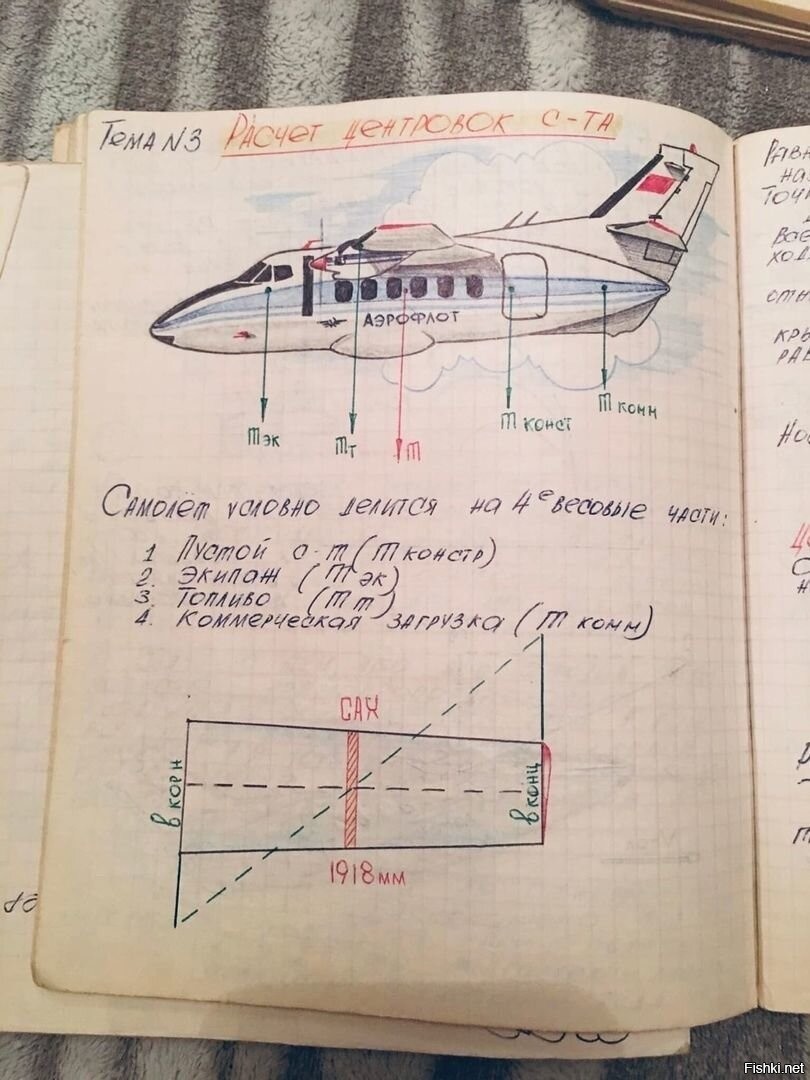 Тема N3 Расчет центровок с-та
АЭРОФЛОТ
m эк
m т
m
m конст
m комм
Самолёт условно делится на 4е весовые части:
1 Пустой с-т (m констр)
2. Экипаж (m эк)
3. Топливо (m т)
4. Коммерческая загрузка (m комм)
САХ
в корн
в конц
1918 мм
Рав
на
точ
вос
ход
отн
кры
рав
Но
Fishki.net